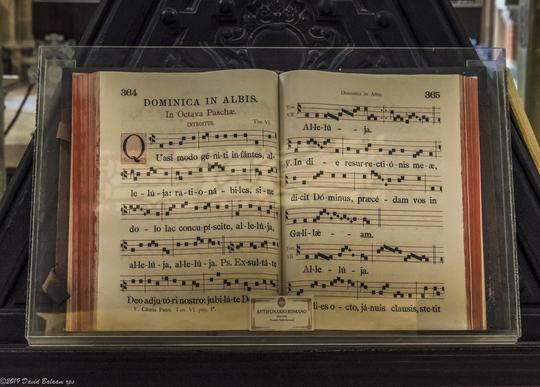 364
DOMINICA IN ALBIS.
In Octava Paschæ.
INTROITUS.
Ton. VI
Quasi modo gé-ni-ti infántes, al-
le-lú-ja: ra-ti-o-ná-bi-les, si-ne
do-lo lac concu-pí-scite, al-le-lú-ja,
al-le-lú-ja, al-le-lú-ja. Ps. Ex-sul-tá-te
Deo adju-tó-ri nostro: jubi-lá-te
V. Gloria Patri. Ton. VI pag.
Dominica in Albis.
365
Ton.
VII
Al-le-lú-ja.
V. In di-e resur-re-cti-ó-nis me-æ,
di-cit Dó-minus, præcé-dam vos in
Ga-li-læ-am.
Ton.
VII
Al-le-lú-ja.
di-es o-cto, já-nuis clausis, ste-tit
ANTIFONARIO ROMANO
©2019 David Balaam rps